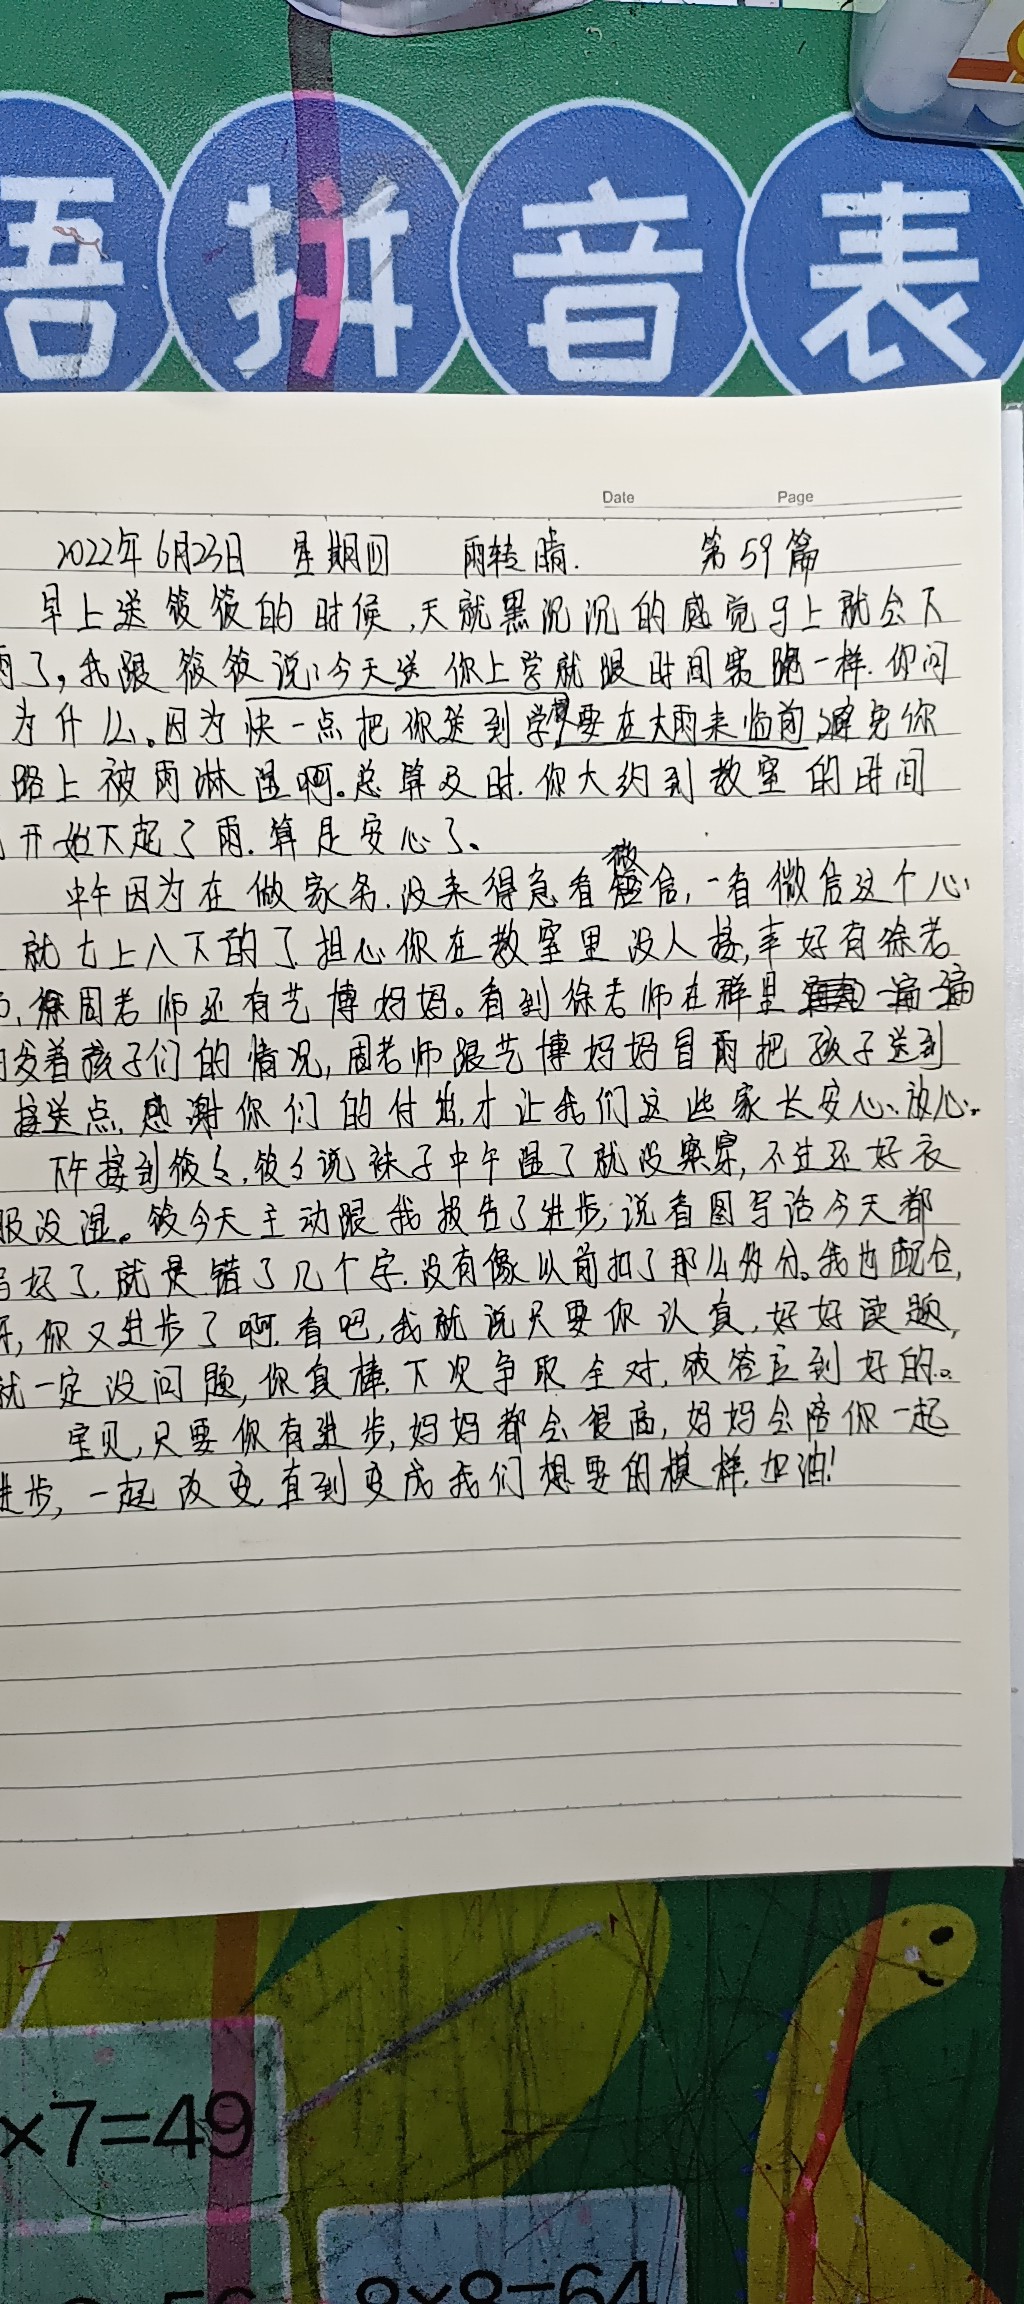 语拼音表
Date Page
2022年6月23日 星期四 雨转晴. 第59篇
早上送筱筱的时候,天就黑沉沉的感觉马上就会下
雨了,我跟筱筱说:今天送你上学就跟时间赛跑一样.你问
为什么。因为快一点把你送到学校要在大雨来临前,避免你
路上被雨淋湿啊。总算及时.你大约到教室的时间
开始下起了雨.算是安心了、
中午因为在做家务.没来得急看微信,一看微信这个心
就七上八下的了.担心你在教室里没人接,幸好有徐老
师,周老师还有艺博妈妈。看到徐老师在群里一遍一遍
的发着孩子们的情况,周老师跟艺博妈妈冒雨把孩子送到
接送点.感谢你们的付出,才让我们这些家长安心、放心.
下午接到筱々,筱々说袜子中午湿了就没穿,不过还好衣
服没湿。筱今天主动跟我报告了进步,说看图写话今天都
写好了.就是错了几个字.没有像以前扣了那么多分。我也配合,
你又进步了啊.看吧,我就说只要你认真,好好读题,
就一定没问题,你真棒.下次争取全对.筱答应到好的。
宝贝,只要你有进步,妈妈都会很高,妈妈会陪你一起
进步,一起改变.直到变成我们想要的模样.加油!
×7=49
8×8=64